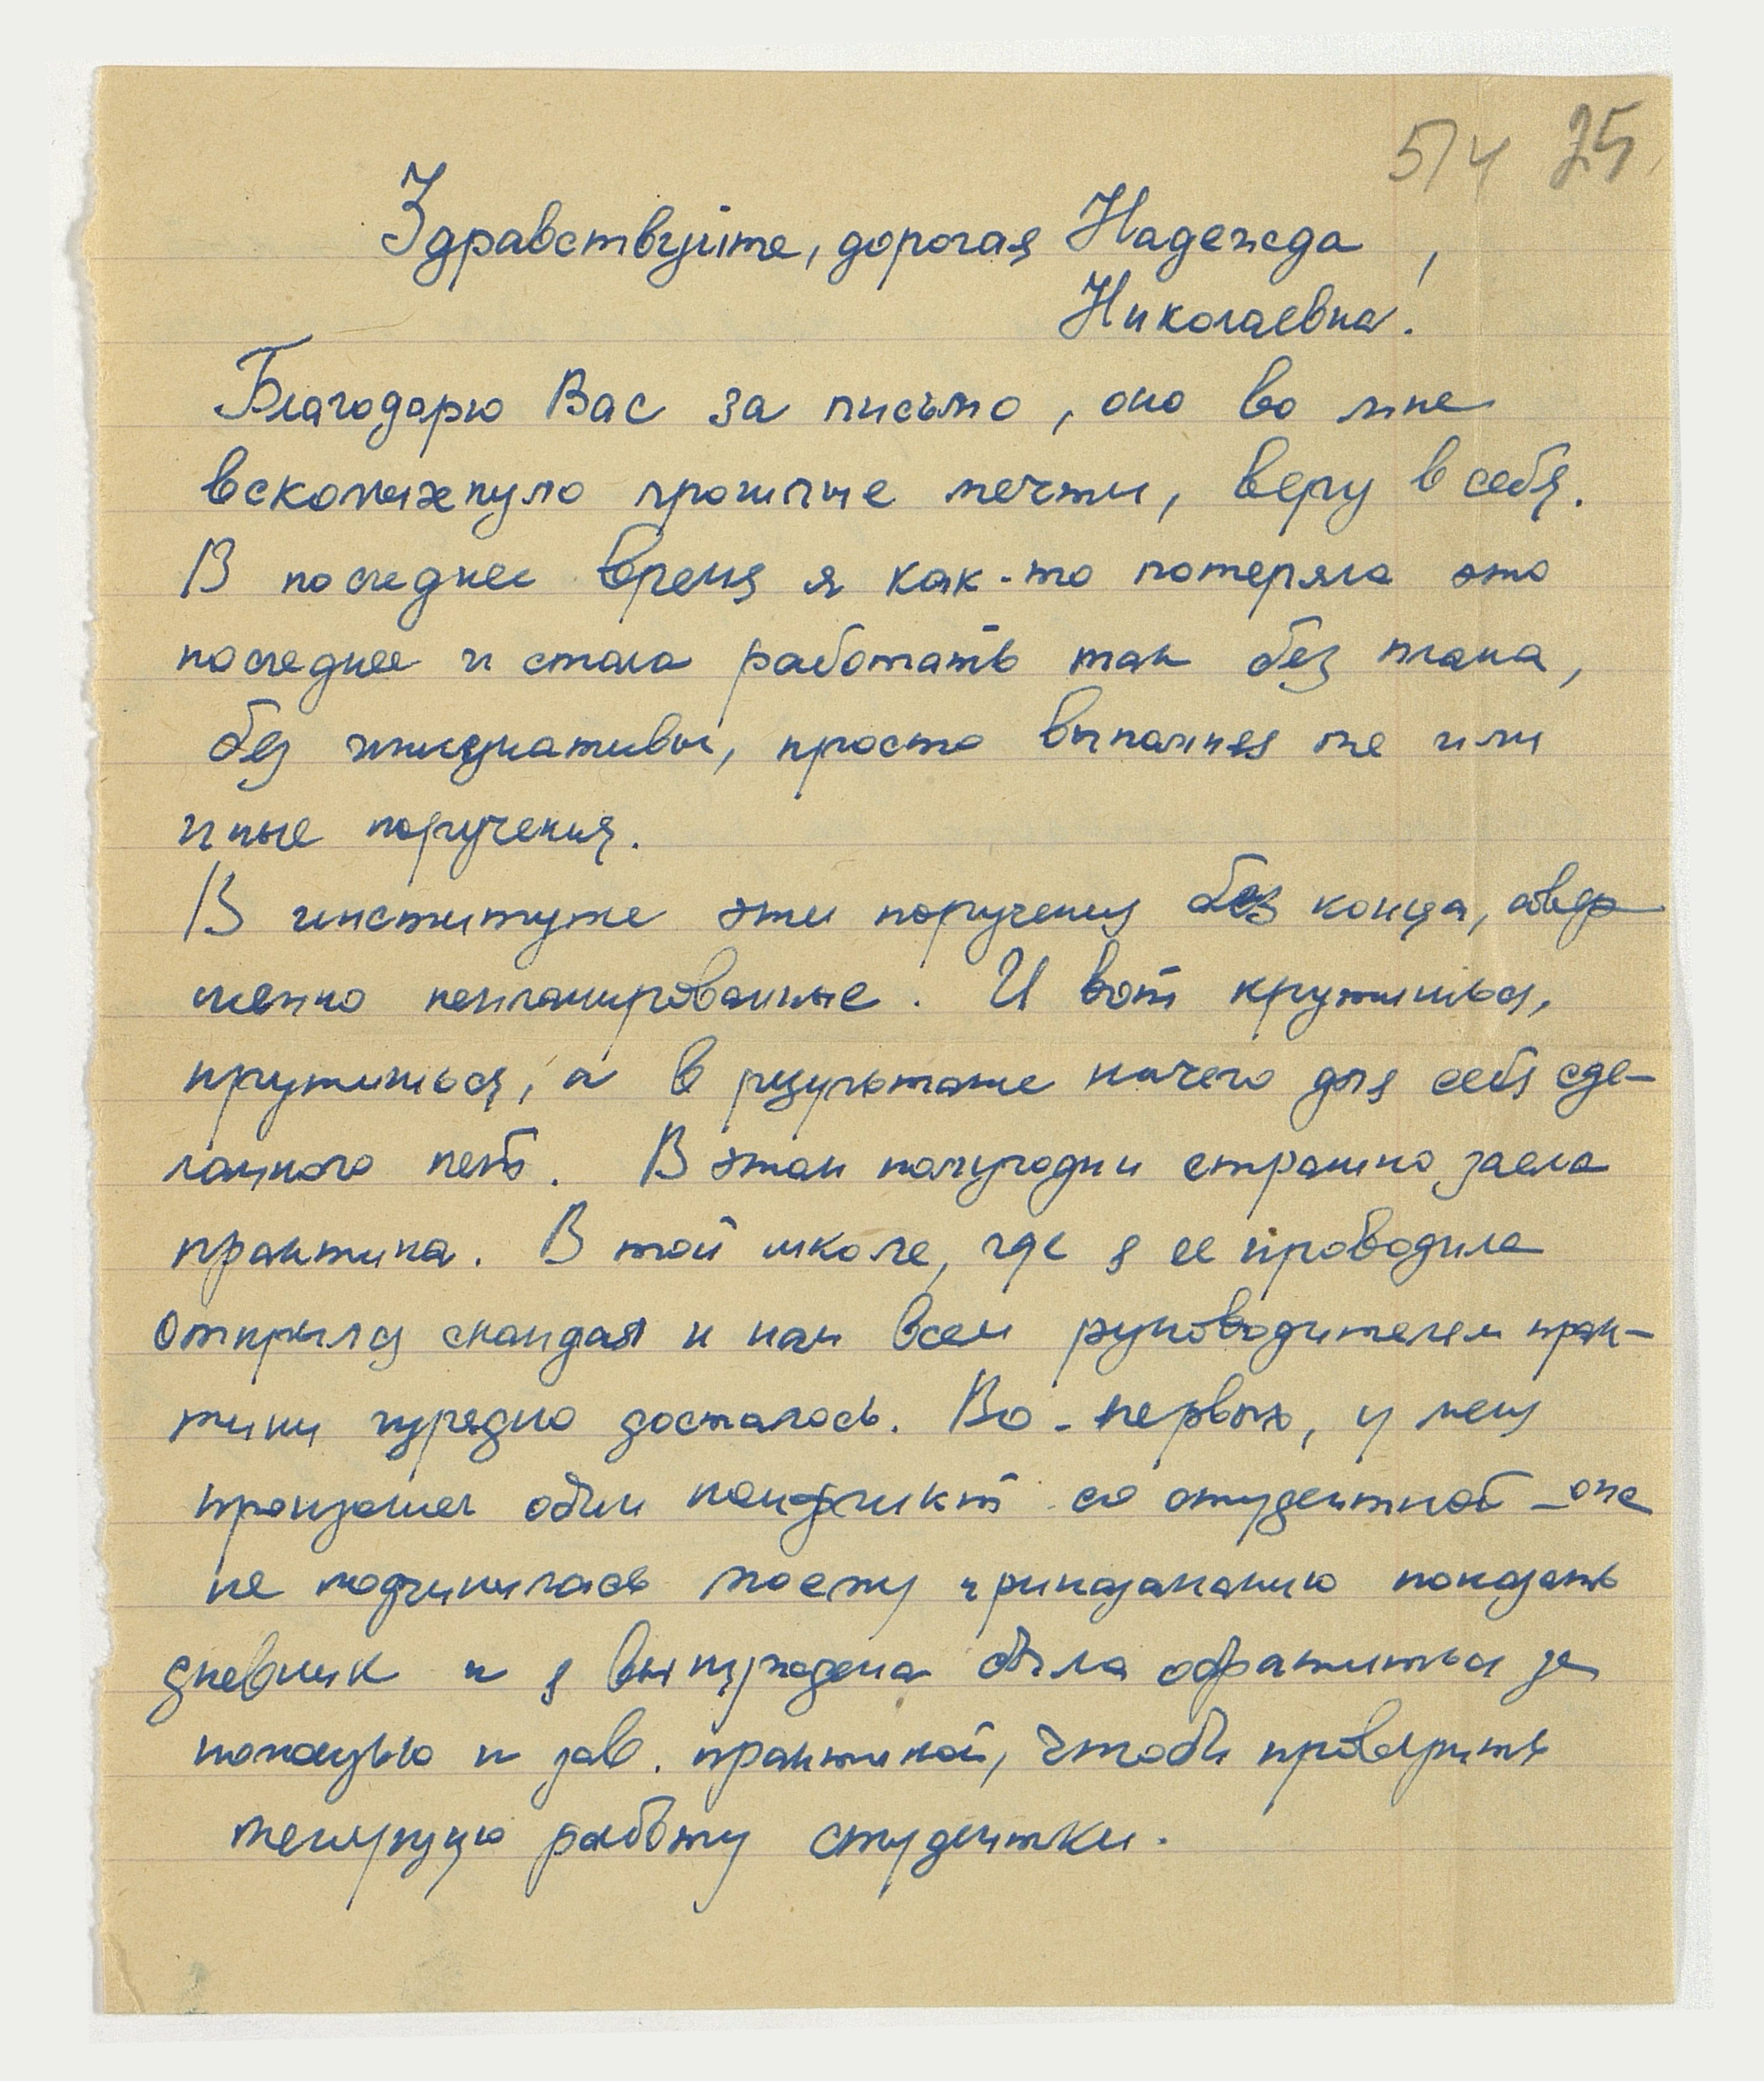 5/4 25
Здравствуйте, дорогая Надежда
Николаевна!
Благодарю Вас за письмо, оно во мне
всколыхнуло прошлые мечты, веру в себя.
В последнее время я как-то потеряла это
последнее и стала работать так без плана,
без инициативы, просто выполняя те или
иные поручения.
В институте эти поручения без конца, совер-
шенно непланированные. И вот кружишься,
крутишься, а в результате ничего для себя сде-
ланного нет. В этом полугодии страшно заела
практика. В той школе, где я ее проводила
открылся скандал и нам всем руководителям прак-
тики изрядно досталось. Во-первых, у меня
произошел один конфликт со студенткой – она
не подчинилась моему приказанию показать
дневник и я вынуждена была обратиться за
помощью к зав. практикой, чтобы проверить
текущую работу студентки.